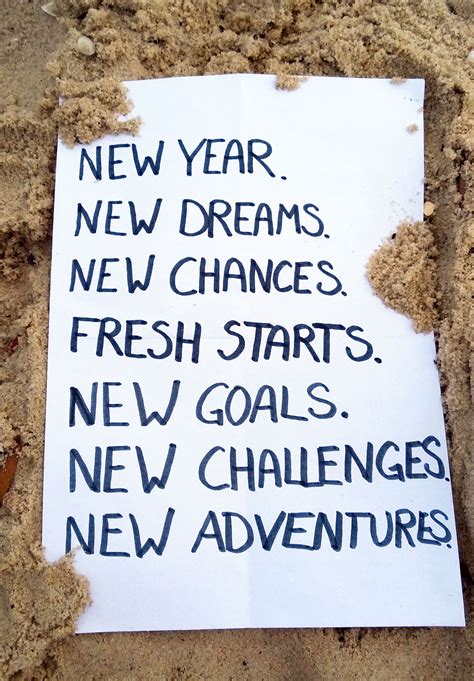 NEW YEAR.
NEW DREAMS.
NEW CHANCES.
FRESH STARTS.
NEW GOALS.
NEW CHALLENGES.
NEW ADVENTURES.